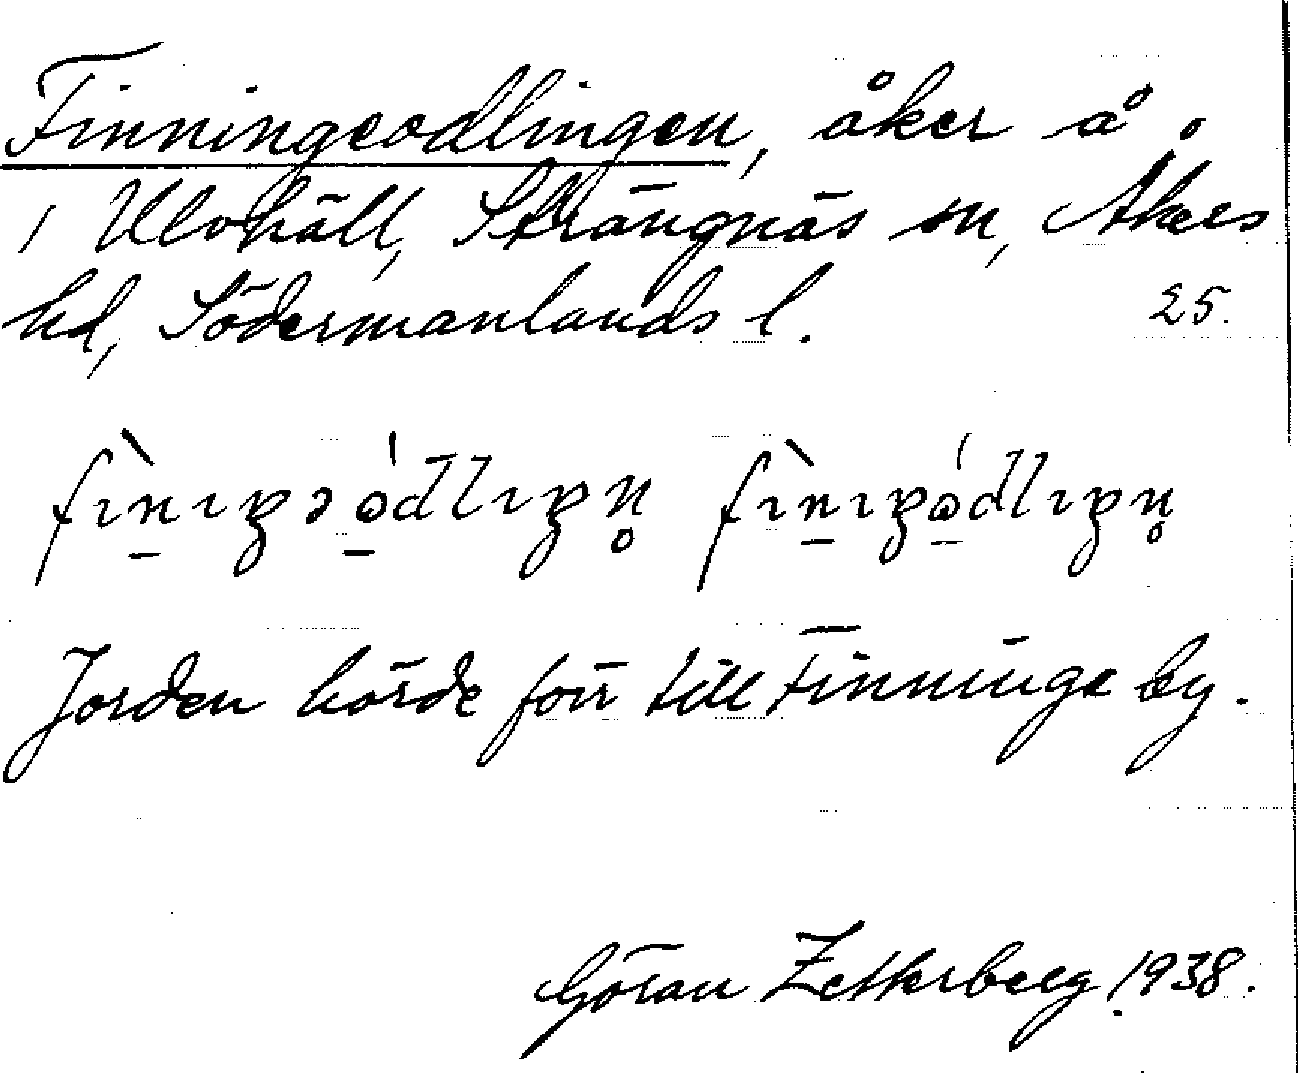 Finningeodlingen, åker å
i Ulvhäll, Strängnäs sn, Åkers
hd, Södermanlands l. 25.
Jorden hörde förr till Finninge by.
Göran Zetterberg 1938.